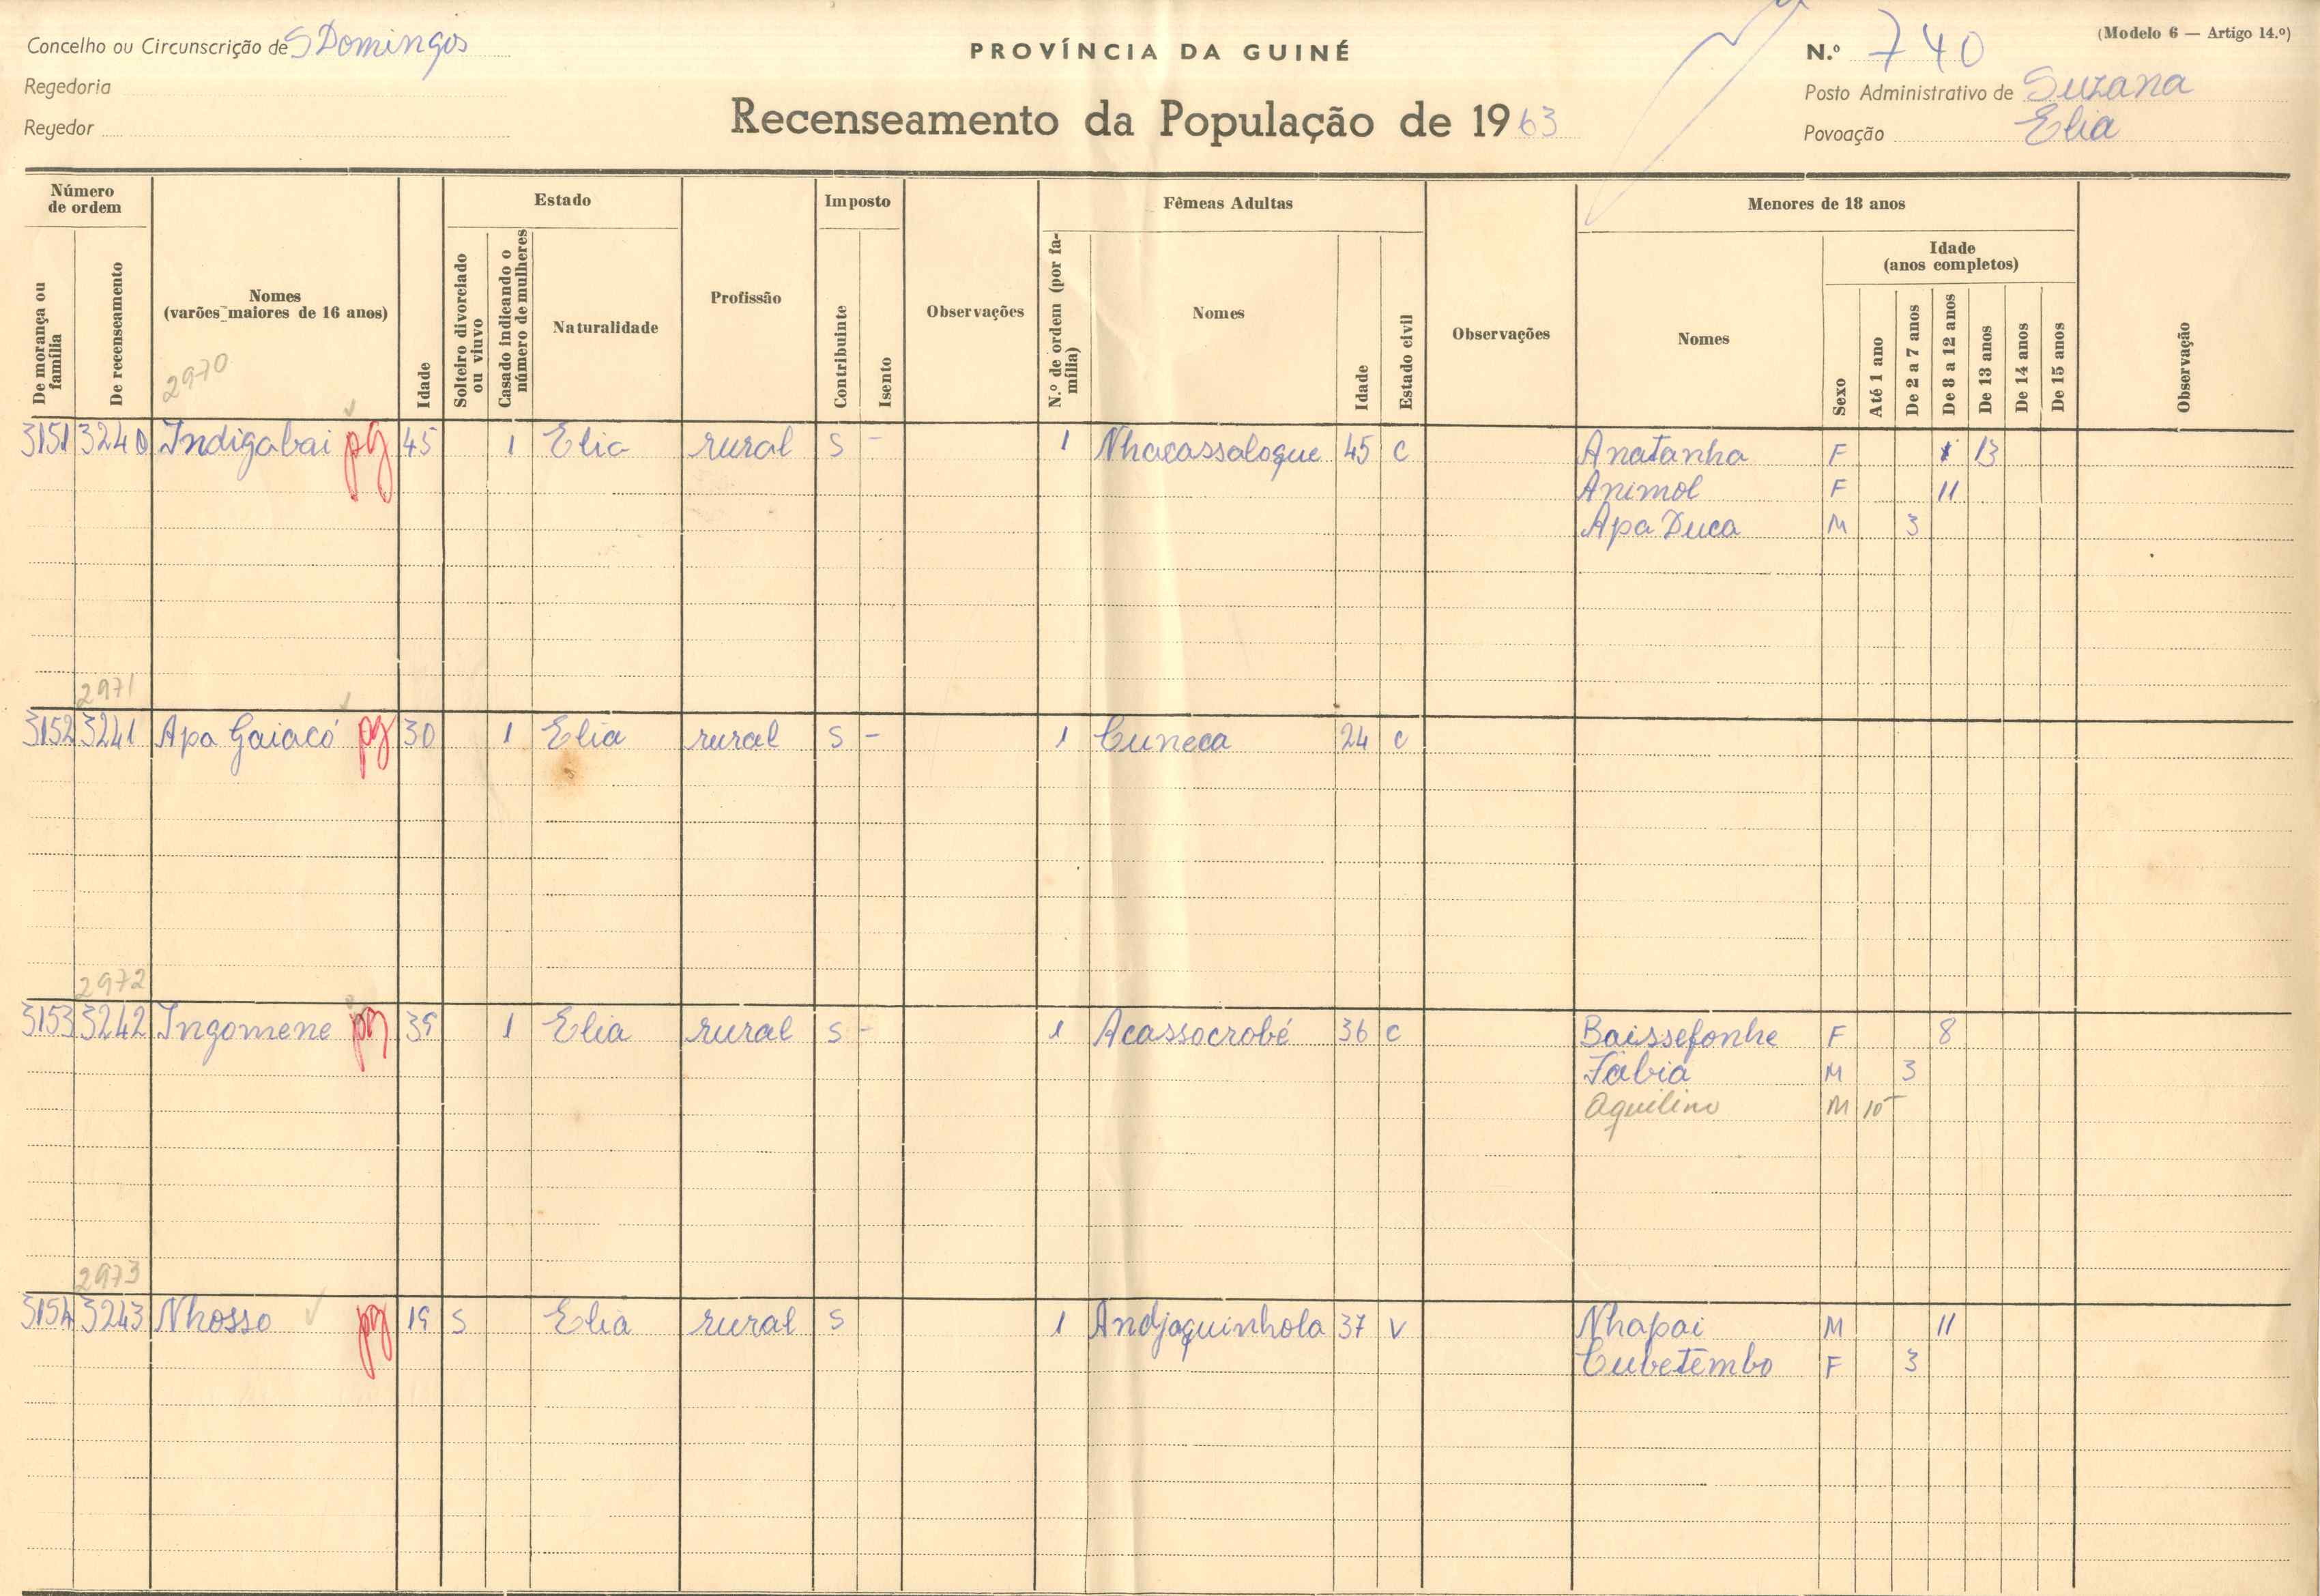 Concelho ou Circunscrição de S Domingos
PROVÍNCIA DA GUINÉ
N.º 740
(Modelo 6 — Artigo 14.º)
Regedoria
Posto Administrativo de Suzana
Regedor
Recenseamento da População de 1963
Povoação Elia
Número de ordem
De morança ou família
De recenseamento
Nomes
(varões maiores de 16 anos)
2970
Idade
Estado
Solteiro divorciado ou viuvo
Casado indicando o número de mulheres
Naturalidade
Profissão
Imposto
Contribuinte
Isento
Observações
Fêmeas Adultas
N.º de ordem (por família)
Nomes
Idade
Estado civil
Observações
Menores de 18 anos
Nomes
Sexo
Idade
(anos completos)
Até 1 ano
De 2 a 7 anos
De 8 a 12 anos
De 13 anos
De 14 anos
De 15 anos
Observação
3151 3240 Indigabai pg 45 1 Elia rural S - 1 Nhacassaloque 45 C Anatanha F 13
Animol F 11
Apa Duca M 3
2971
3152 3241 Apa Gaiacó pg 30 1 Elia rural S - 1 Cuneca 24 C
2972
3153 3242 Ingomene pg 39 1 Elia rural S - 1 Acassocrobé 36 C Baissefonhe F 8
Fabia M 3
Aquilino M 10
2973
3154 3243 Nhosso pg 19 S Elia rural S 1 Andjaquinhola 37 V Nhapai M 11
Cubetembo F 3